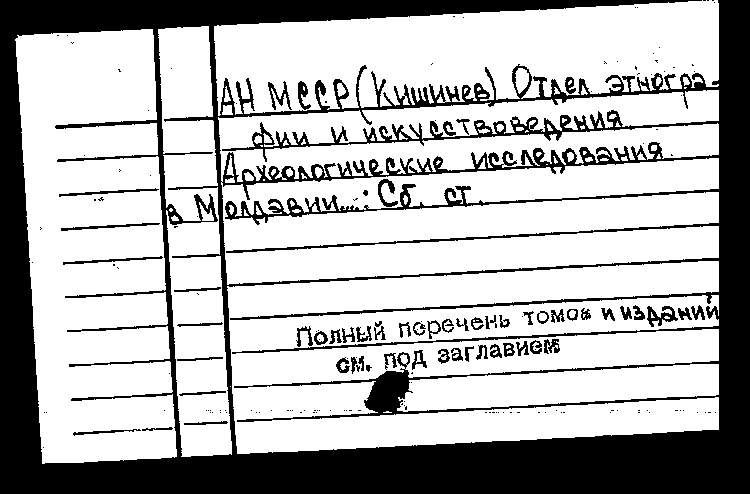 АН МССР (Кишинев). Отдел этногра-
фии и искусствоведения.
Археологические исследования
в Молдавии...: Сб. ст.
Полный перечень томов и изданий
см. под заглавием